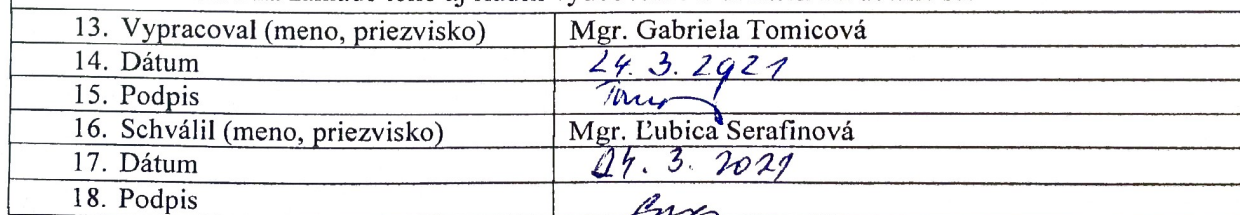 13. Vypracoval (meno, priezvisko) Mgr. Gabriela Tomicová
14. Dátum 24. 3. 2021
15. Podpis
16. Schválil (meno, priezvisko) Mgr. Ľubica Serafinová
17. Dátum 24. 3. 2021
18. Podpis